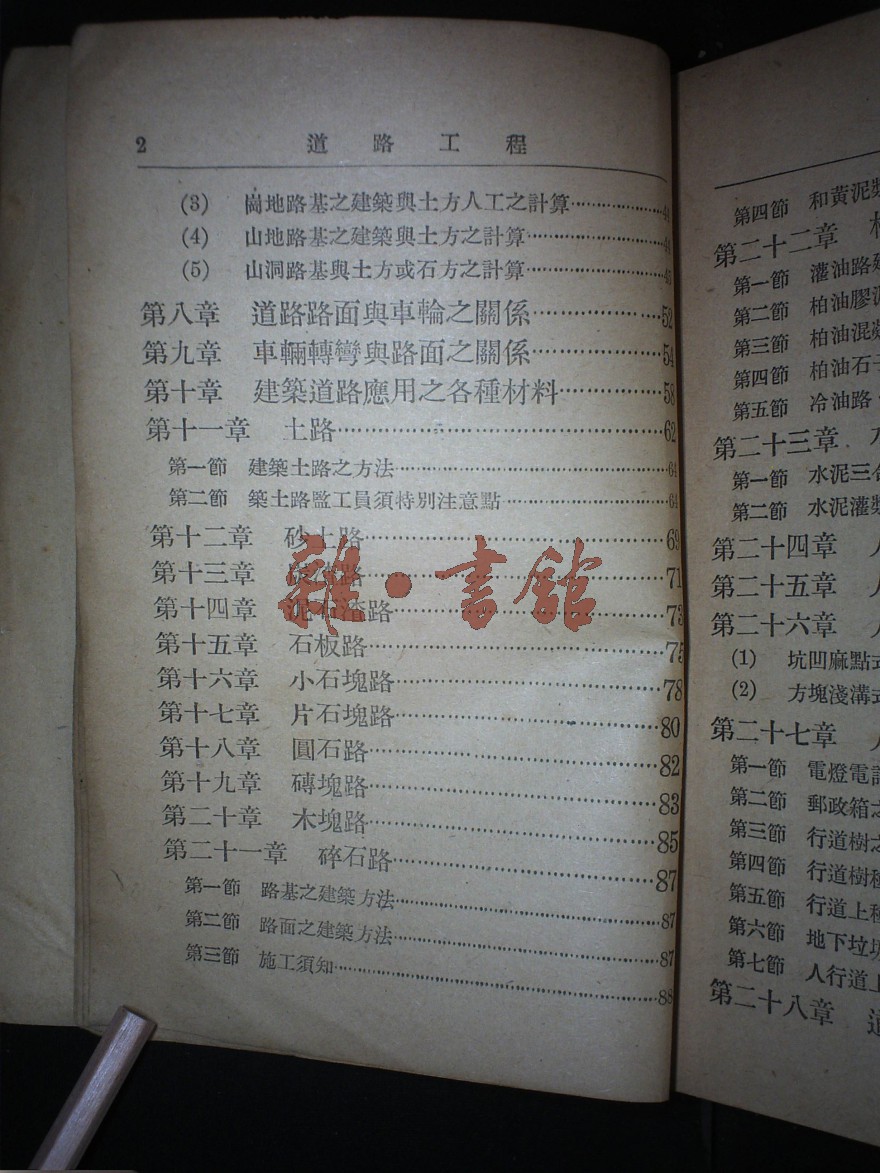 2 道路工程
(3) 崗地路基之建築與土方人工之計算……44
(4) 山地路基之建築與土方之計算……44
(5) 山洞路基與土方或石方之計算……
第八章 道路路面與車輪之關係……52
第九章 車輛轉彎與路面之關係……54
第十章 建築道路應用之各種材料……58
第十一章 土路……62
第一節 建築土路之方法……64
第二節 築土路監工員須特別注意點……64
第十二章 砂土路……69
第十三章 路……71
第十四章 泥石渣路……73
第十五章 石板路……75
第十六章 小石塊路……78
第十七章 片石塊路……80
第十八章 圓石路……82
第十九章 磚塊路……83
第二十章 木塊路……85
第二十一章 碎石路……87
第一節 路基之建築方法……87
第二節 路面之建築方法……87
第三節 施工須知……88
雜·書館
第四節 和黃泥類
第二十二章
第一節 灌油路建
第二節 柏油膠泥
第三節 柏油混
第四節 柏油石子
第五節 冷油路
第二十三章 水
第一節 水泥三合
第二節 水泥灌類
第二十四章
第二十五章
第二十六章
(1) 坑凹麻點式
(2) 方塊淺溝式
第二十七章
第一節 電燈電
第二節 郵政箱之
第三節 行道樹之
第四節 行道樹種
第五節 行道上種
第六節 地下垃圾
第七節 人行道上
第二十八章 道